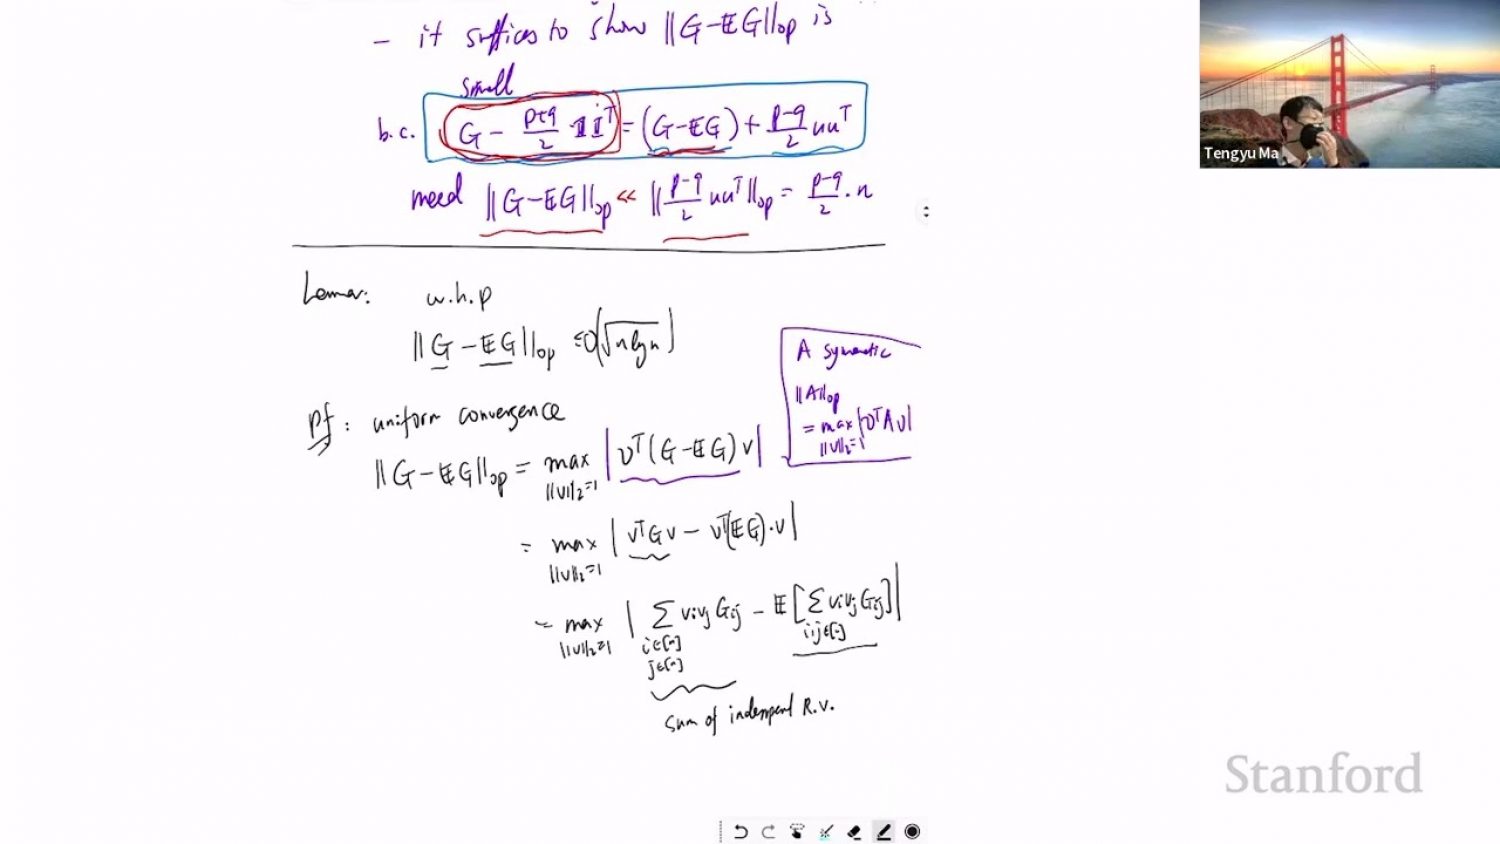 - it suffices to show ||G-𝔼G||op is
small
b.c. G - p+q/2 𝟙𝟙ᵀ = (G-𝔼G) + p-q/2 uuᵀ
need ||G-𝔼G||op << ||p-q/2 uuᵀ||op = p-q/2 · n
Lemma: w.h.p
||G-𝔼G||op ≤ O(√n log n)
A symmetric
||A||op
= max |vᵀAv|
||v||₂=1
Pf: uniform convergence
||G-𝔼G||op = max |vᵀ(G-𝔼G)v|
||v||₂=1
= max |vᵀGv - vᵀ(𝔼G)·v|
||v||₂=1
= max |Σ vivj Gij - 𝔼[Σ vivj Gij]|
||v||₂=1 i∈[n] i,j∈[n]
j∈[n]
sum of independent R.V.
Tengyu Ma
Stanford